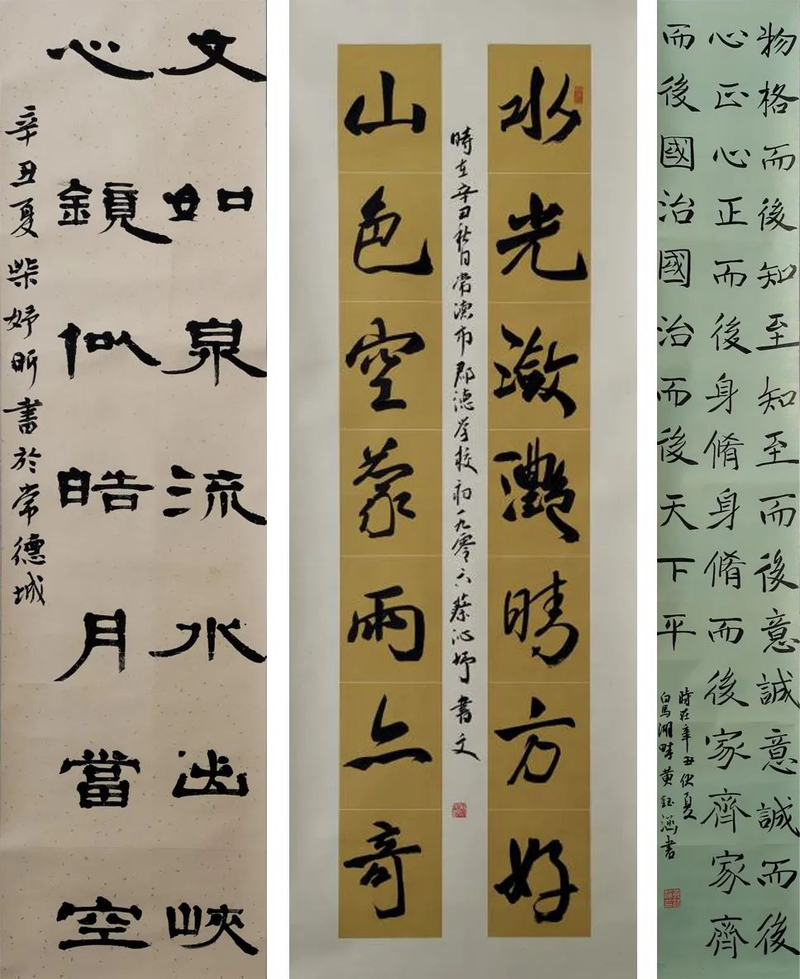 文如泉流水出峽
心鏡似皓月當空
辛丑夏柴妤昕書於常德城
水光瀲灩晴方好
時在辛丑秋日常德市郡德学校初一九零六蔡沁妤書文
山色空蒙雨亦奇
物格而後知至知至而後意誠意誠而後
心正心正而後身脩身脩而後家齊家齊
而後國治國治而後天下平
時在辛丑伏夏
白馬湖畔黄鈺涵書